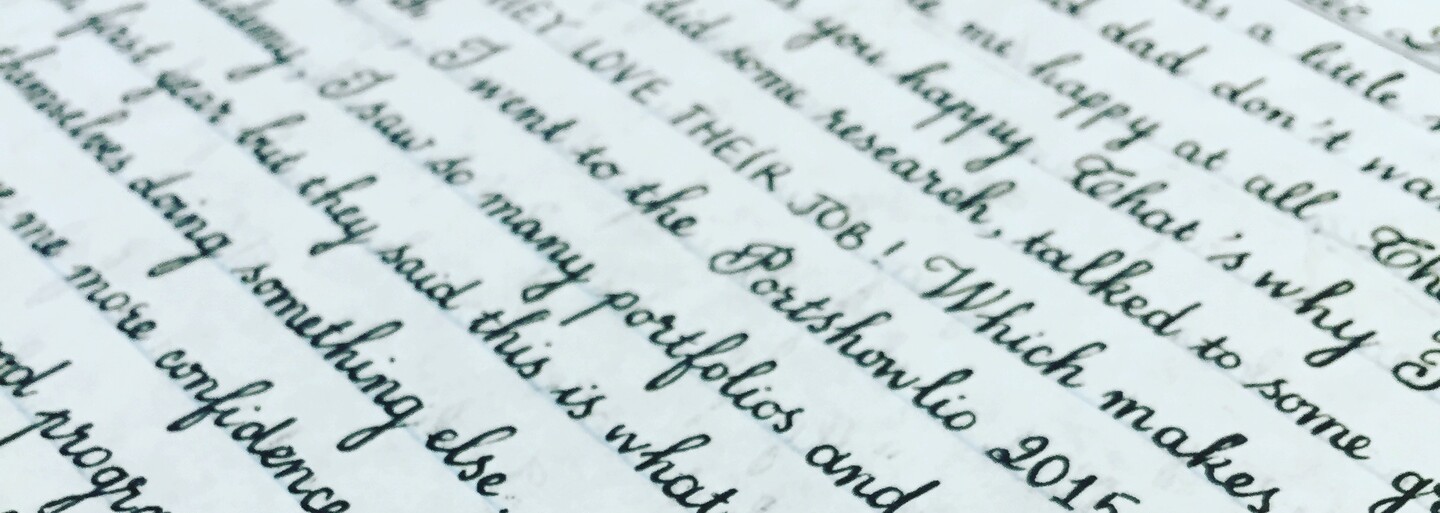 a little
dad don't
me happy at all.
you happy. That's why I
did some research, talked to some
HEY LOVE THEIR JOB! Which makes
I went to the Portshowlio 2015
I saw so many portfolios and
first year but they said this is what
themselves doing something else.
me more confidence
progra